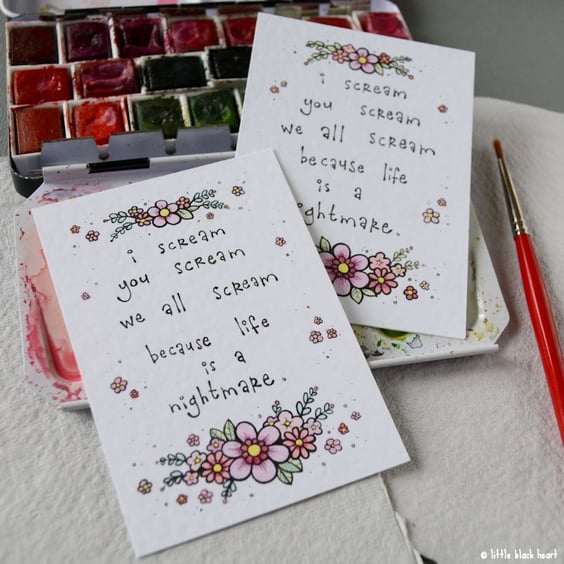 i scream
you scream
we all scream
because life
is a
nightmare.
i scream
you scream
we all scream
because life
is a
nightmare.
© little black heart